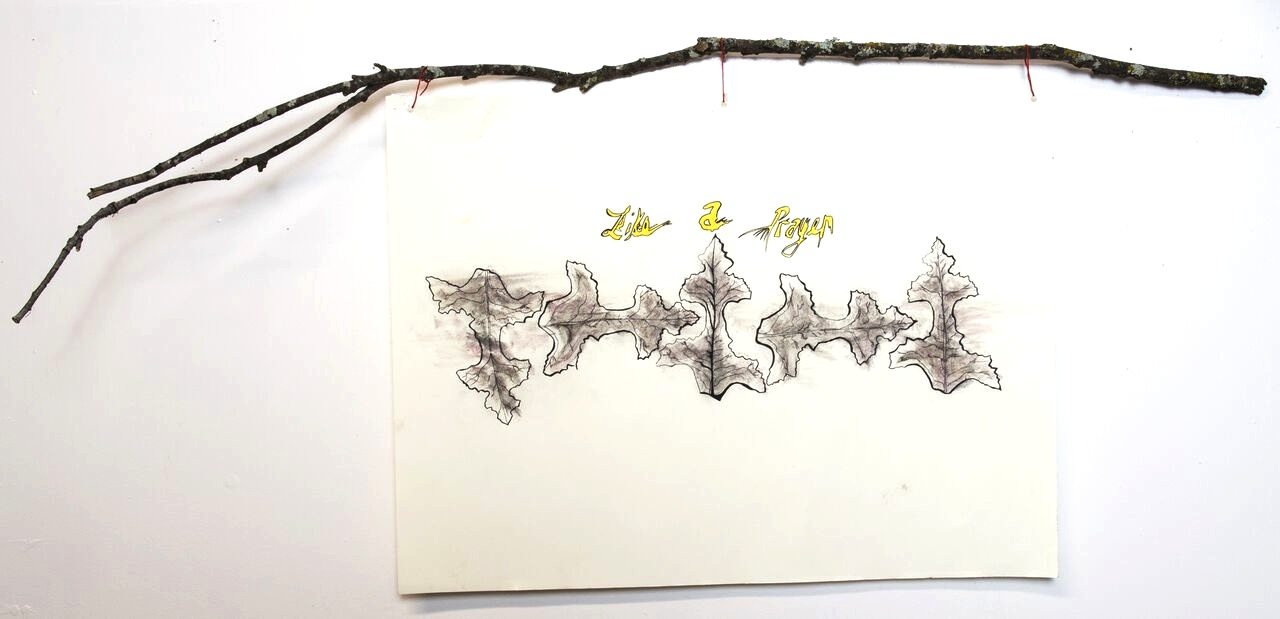 Like a Prayer